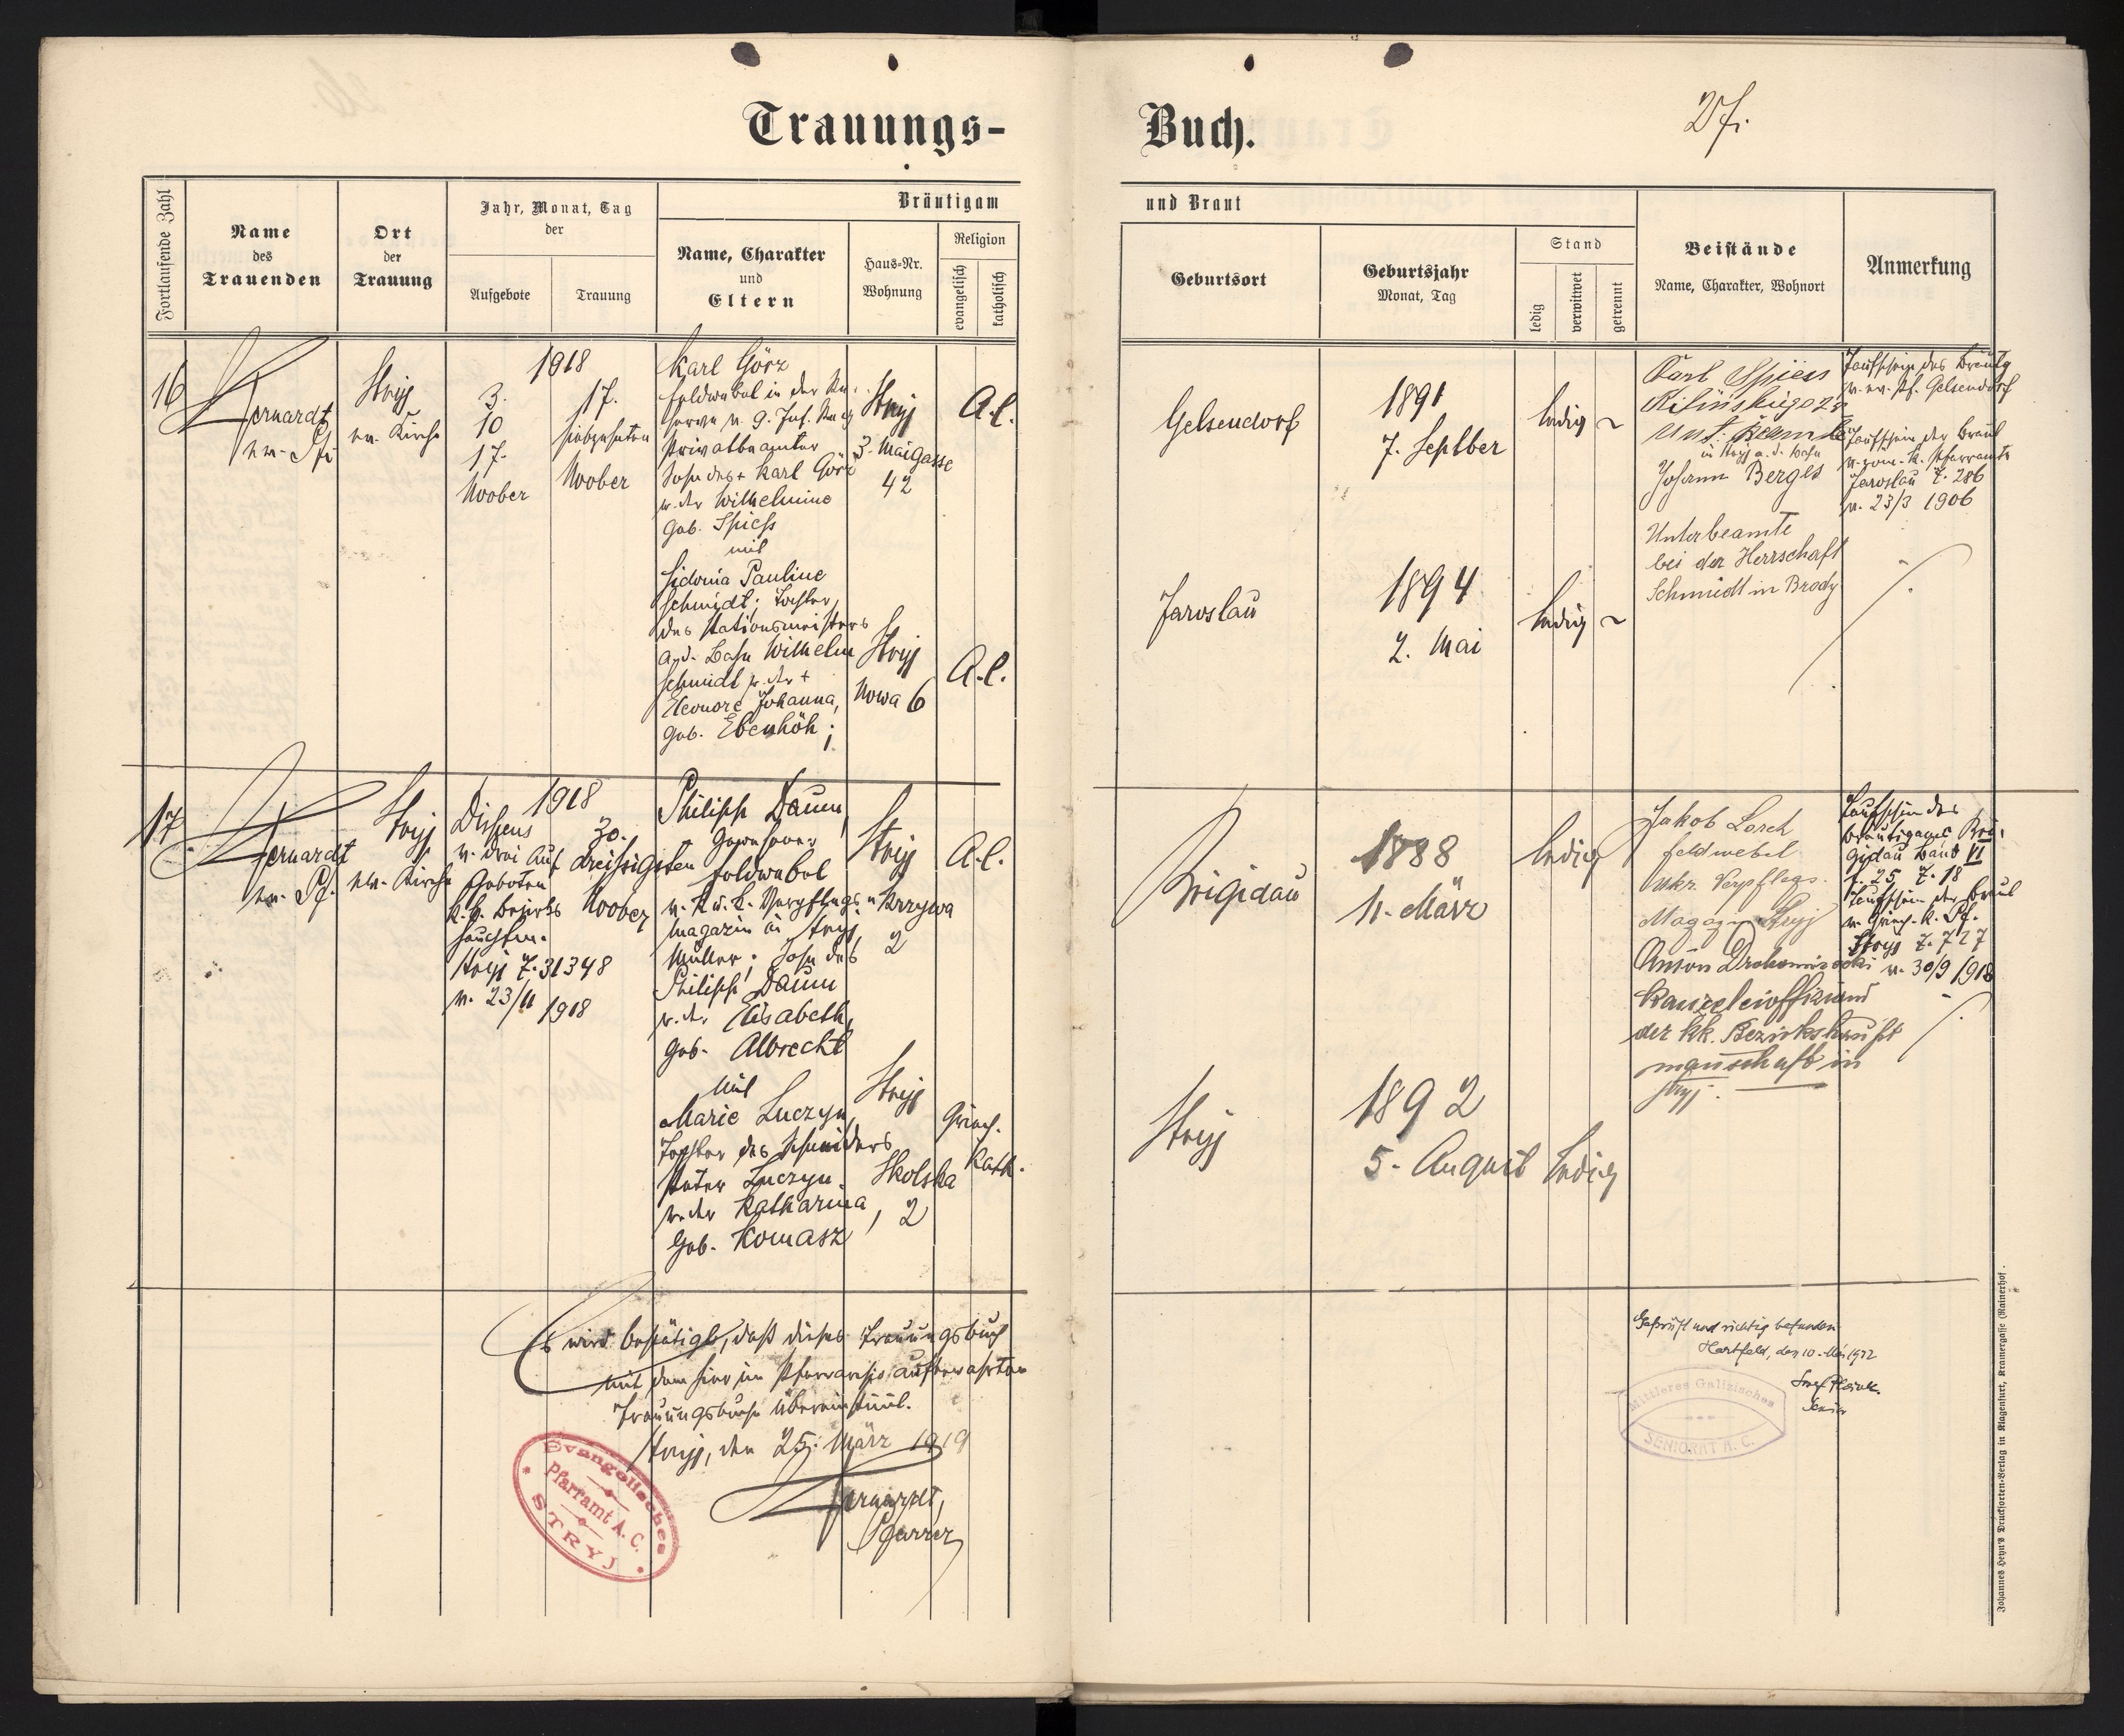 27.
Trauungs-
Buch.
Fortlaufende Zahl
Name
des
Trauenden
Ort
der
Trauung
Jahr, Monat, Tag
der
Aufgebote
Trauung
Bräutigam
Name, Charakter
und
Eltern
Haus-Nr.
Wohnung
Religion
evangelisch
katholisch
und Braut
Geburtsort
Geburtsjahr
Monat, Tag
Stand
ledig
verwitwet
getrennt
Beistände
Name, Charakter, Wohnort
Anmerkung
16
ev. Pf.
Stryj
ev. Kirche
1918
3.
10
17.
Novber
17.
siebzehnten
Novber
Karl Görz
Feldwebel in der Re-
serve
Privatbeamter
Sohn des + Karl Görz
u. der Wilhelmine
geb. Spiess
mit
Sidonia Pauline
Schmidt; Tochter
des Stationsmeisters
a. d. Bahn Wilhelm
Schmidt u. der +
Eleonore Johanna,
geb. Ebenhöh;
Stryj
3. Maigasse
42
A.C.
Stryj
Nowa 6
A.C.
Gelsendorf
1891
7. Septber
ledig
Jaroslau
1894
2. Mai
ledig
Karl Spiess
Unt. Beamte
in Stryj a. d. Bahn
Johann Berges
Unterbeamte
bei der Herrschaft
Schmidt in Brody
Taufschein des Bräutg
v. ev. Pf. Gelsendorf
Taufschein der Braut
v. röm. k. Pfarramte
Jaroslau Z. 286
v. 23/3 1906
17
ev. Pf.
Stryj
ev. Kirche
1918
Dispens
v. drei Auf
geboten
k. k. Bezirks
hauptm.
Stryj Z. 31348
v. 23/11 1918
30.
dreissigsten
Novber
Philipp Daum,
gewesener
Feldwebel
v. k. u. k. Verpflegs
magazin in Stryj,
Müller; Sohn des
Philipp Daum
u. der Elisabeth,
geb. Albrecht
mit
Marie Luczyn,
Tochter des Schneiders
Peter Luczyn
u. der Katharina,
geb. Komasz
Stryj
Krzywa
2
A.C.
Stryj
Skolska
2
Griech.
kath.
Brigidau
1888
11. März
ledig
Stryj
1892
5. August
ledig
Jakob Lorch
Feldwebel
ukr. Verpflegs.
Magazin Stryj
Anton
Kanzleioffiziant
der kk. Bezirkshaupt
mannschaft in
Stryj.
Taufschein des
Bräutigams Bri-
gidau Band VI
Z. 18
Taufschein der Braut
v. griech. k. Pf.
Stryj Z. 727
v. 30/9 1918
Es wird bestätigt, daß dieses Trauungsbuch
mit dem hier im Pfarrarchiv aufbewahrten
Trauungsbuche übereinstimmt.
Stryj, den 25. März 1919
Pfarrer
Evangelisches
Pfarramt A. C.
STRYJ
Geprüft und richtig befunden
Hartfeld, den 10. Mai 1922
Senior
Mittleres Galizisches
SENIORAT A. C.
Johannes Heyn's Drucksorten-Verlag in Klagenfurt, Kramergasse (Rainerhof).